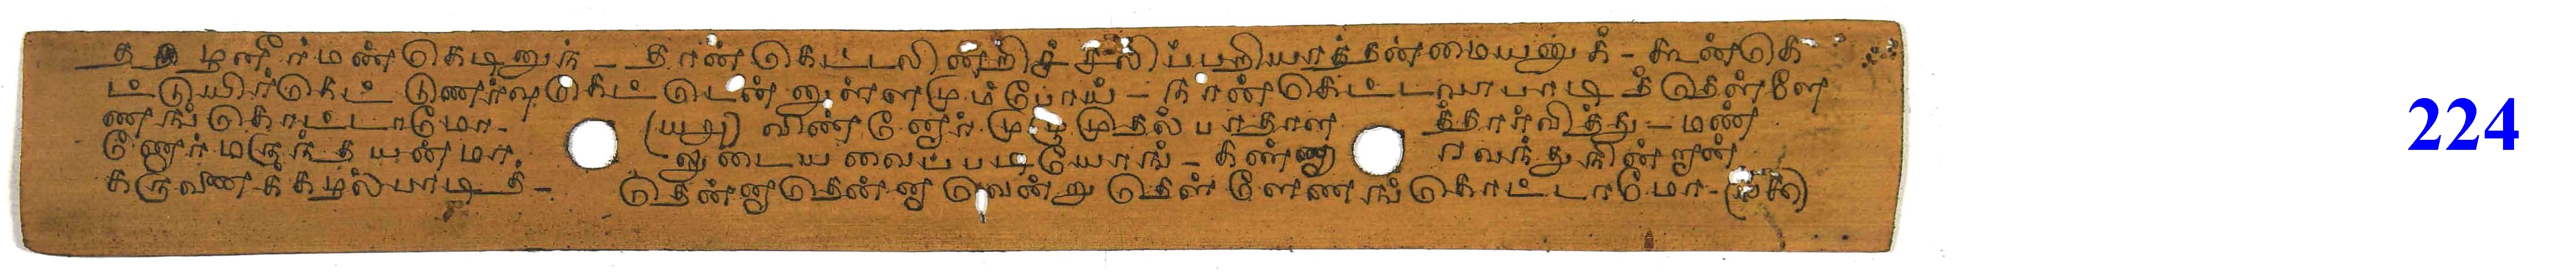 ழனீர்மண்கெடினுந் - தான்கெட்டலின்றிச் சலிப்பறியாத்தன்மையனுக் - கூன்கெ
ட்டுயிர்கெட் டுணர்வுகெட் டென் னுள்ளமும்போய் - நான்கெட்டவாபாடித் தெள்ளே
ணங்கொட்டாமோ - (௰௮) விண்ணோர் முழுமுதல் பாதாள த்தார்வித்து - மண்
ணோர்மருந்தயன்மா லுடைய வைப்படியோங் - கண்ணா ரவந்துநின்றான்
கருணைக்கழல்பாடித் - தென்னாதென்னா வென்று தெள்ளேணங்கொட்டாமோ - (௰௯)
224